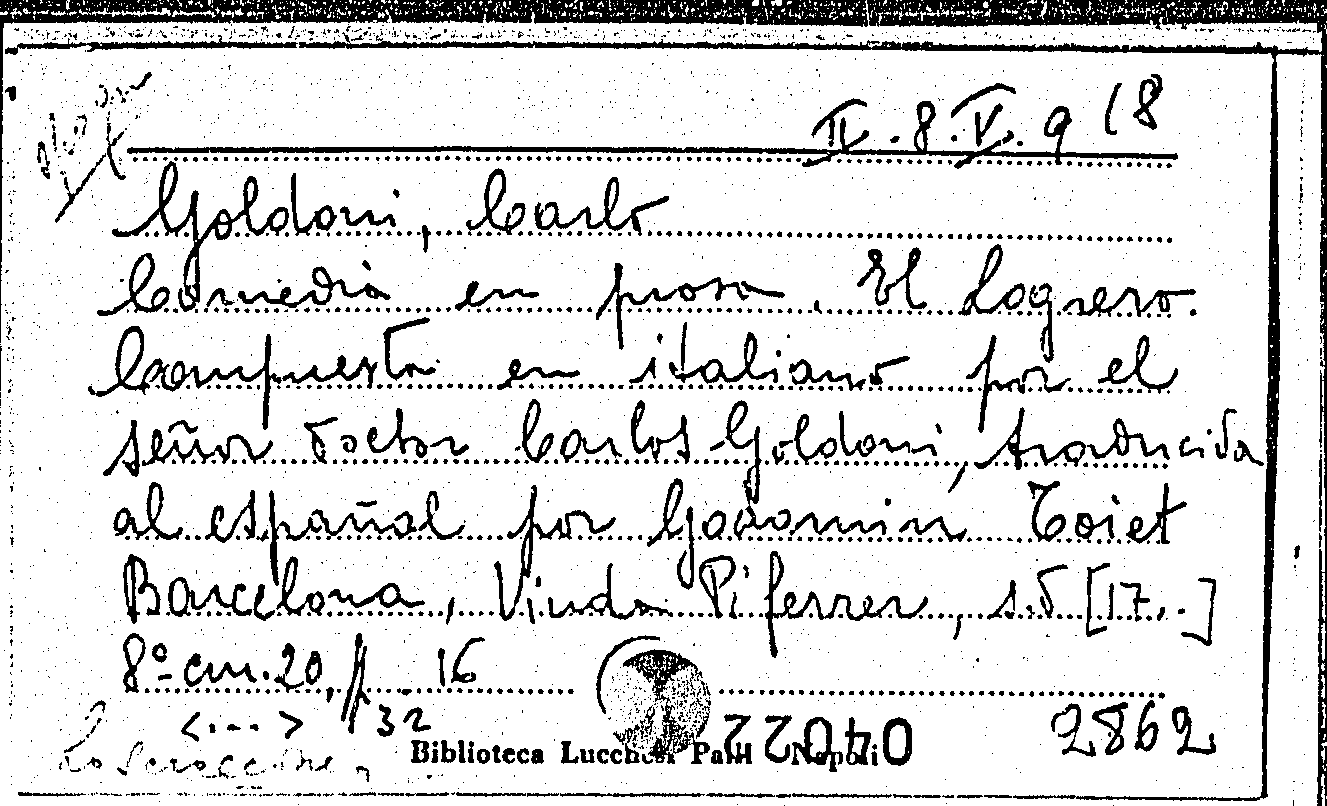 II.8.V.9 (8
Goldoni, Carlo
Comedia en prosa. El Logrero.
Compuesta en italiano por el
señor doctor Carlos Goldoni, traducida
al español por
Barcelona, Viuda Piferrer, s.d [17..]
8º cm.20, p. 16
<...> 32
Biblioteca Lucchesi Palli Napoli
04022
2862